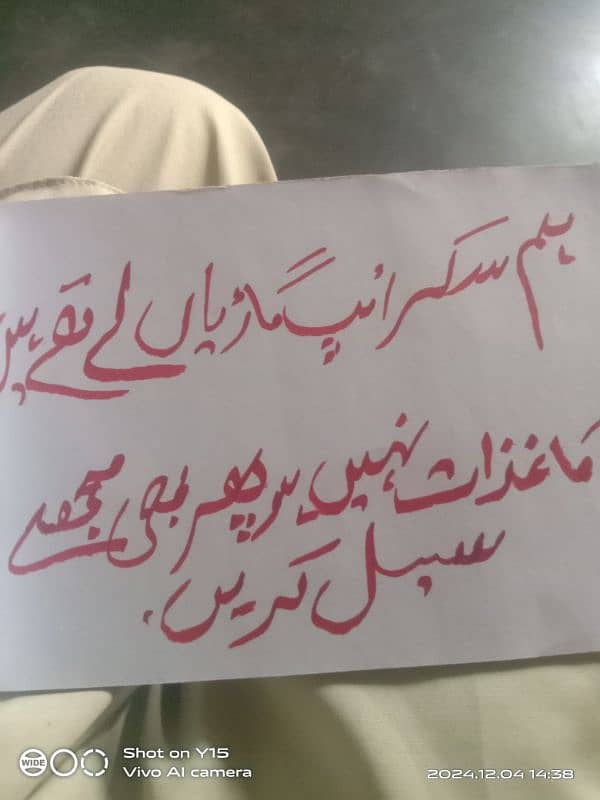 ہم سکراپ گاڑیاں لے تھے ہیں
کاغذات نہیں ہو پھر بھی مجھے
سیل کریں.
WIDE
Shot on Y15
Vivo AI camera
2024.12.04 14:38